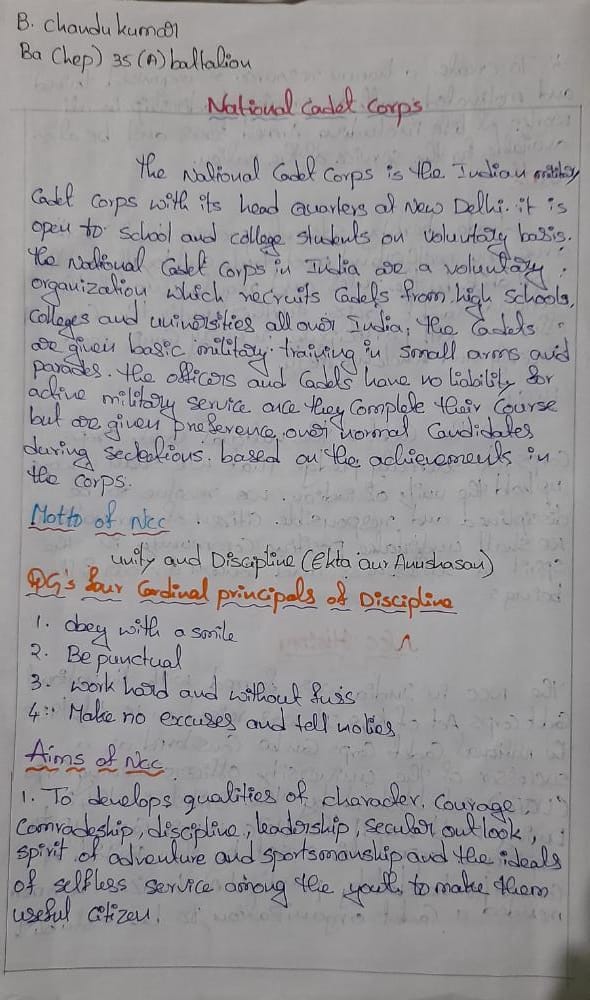 B. chandu kumar
Ba (hep) 35 (A) battalion
National Cadet Corps
The National Cadet Corps is the Indian military
Cadet Corps with its head quarters at New Delhi. it is
open to school and college students on voluntary basis.
the National Cadet Corps in India are a voluntary
organization which recruits Cadets from high schools,
Colleges and universities all over India, the Cadets
are given basic military training in small arms and
parades. the officers and Cadets have no liability for
active military service once they Complete their Course
but are given preference over normal Candidates
during seclections based on the achievements in
the corps.
Motto of Ncc
unity and Discipline (Ekta aur Anushasan)
DG's four Cardinal principals of Discipline
1. obey with a smile
2. Be punctual
3. work hard and without fuss
4. Make no excuses and tell no lies
Aims of Ncc
1. To develops qualities of character, Courage,
Comradeship, discipline, leadership, secular outlook,
spirit of adventure and sportsmanship and the ideals
of selfless service among the youth to make them
useful citizen.